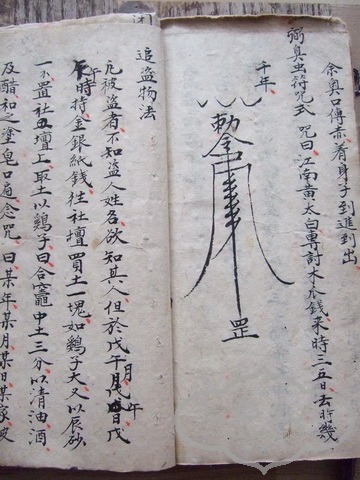 余奥口傳赤着身子到進到出
弼臭虫符咒式 咒曰江南黄太白專討木瓜錢来時三五日去時幾
千年
勅令
罡
追盗物法
凡被盗者不知盗人姓名欲知其人但於戊午月戊日戊午
時持金銀紙錢往社壇買土一塊如鷄子大又以辰砂
一 置社 壇上取土以鷄子曰合竈中土三分以清油酒
及醋和之塗 口 念咒曰某年某月某日某家皮